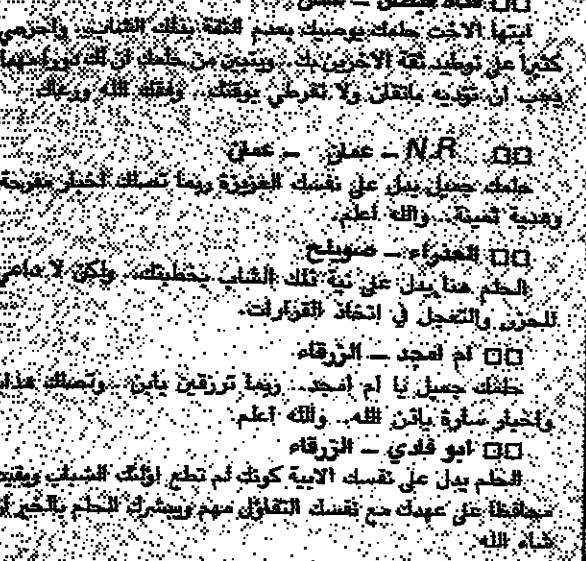 ايتها الاخت حلمك يوصيك بعدم الثقة بذلك الشاب.. واحرصي
كثيرا على توطيد ثقة الاخرين بك.. ويتبين من حلمك ان لك دورا مهما
يجب ان تؤديه باتقان ولا تفرطي بوقتك.. وفقك الله ورعاك
□□ N.R – عمان – عمان
حلمك جميل يدل على نفسك العزيزة وربما تصلك اخبار مفرحة
وهدية ثمينة.. والله اعلم.
□□ العذراء – صويلح
الحلم هنا يدل على نية ذلك الشاب بخطبتك.. ولكن لا داعي
للحزن والتعجل في اتخاذ القرارات.
□□ ام امجد – الزرقاء
حلمك جميل يا ام امجد.. ربما ترزقين بابن.. وتصلك
واخبار سارة باذن الله.. والله اعلم.
□□ ابو فادي – الزرقاء
الحلم يدل على نفسك الابية كونك لم تطع اولئك الشباب
محافظا على عهدك مع نفسك التفاؤل مهم ويبشرك الحلم بالخير
شاء الله